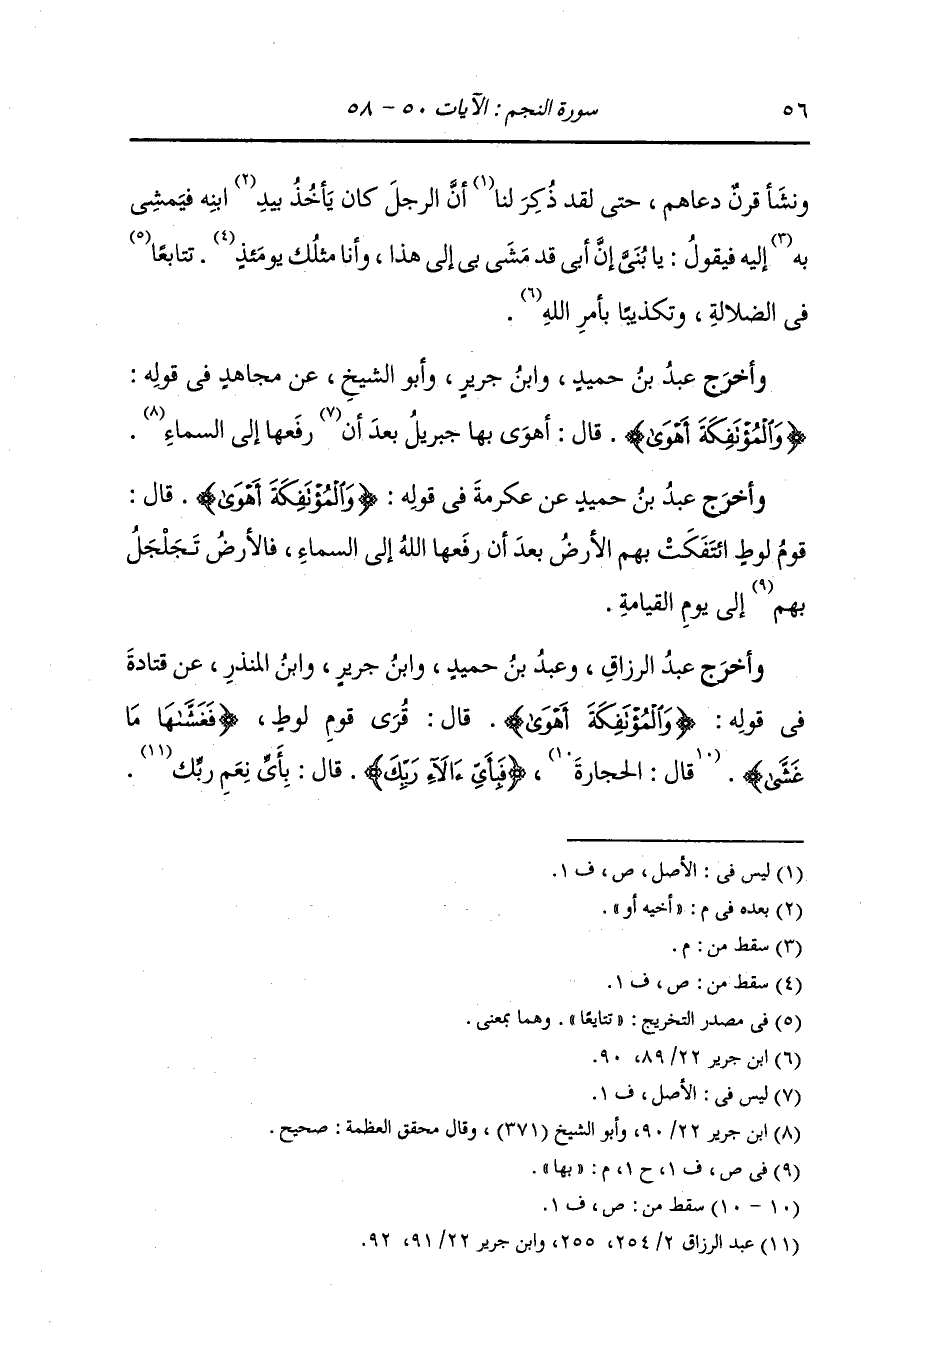 ٥٦ سورة النجم : الآيات ٥٠ - ٥٨
ونشَأ قرنٌ دعاهم ، حتى لقد ذُكِرَ لنا(١) أنَّ الرجلَ كان يَأخُذُ بيدِ(٢) ابنِه فيَمشِى
به(٣) إليه فيقولُ : يا بُنَىَّ إنَّ أبى قد مَشَى بى إلى هذا ، وأنا مثلُك يومَئذٍ(٤) . تتابعًا(٥)
فى الضلالةِ ، وتكذيبًا بأمرِ اللهِ(٦) .
وأخرَج عبدُ بنُ حميدٍ ، وابنُ جريرٍ ، وأبو الشيخِ ، عن مجاهدٍ فى قولِه :
﴿وَٱلْمُؤْتَفِكَةَ أَهْوَىٰ﴾ . قال : أهوَى بها جبريلُ بعدَ أن(٧) رفَعها إلى السماءِ(٨) .
وأخرَج عبدُ بنُ حميدٍ عن عكرمةَ فى قولِه : ﴿وَٱلْمُؤْتَفِكَةَ أَهْوَىٰ﴾ . قال :
قومُ لوطٍ ائتَفَكَتْ بهم الأرضُ بعدَ أن رفَعها اللهُ إلى السماءِ ، فالأرضُ تَجَلْجَلُ
بهم(٩) إلى يومِ القيامةِ .
وأخرَج عبدُ الرزاقِ ، وعبدُ بنُ حميدٍ ، وابنُ جريرٍ ، وابنُ المنذرِ ، عن قتادةَ
فى قولِه : ﴿وَٱلْمُؤْتَفِكَةَ أَهْوَىٰ﴾ . قال : قُرَى قومِ لوطٍ ، ﴿فَغَشَّىٰهَا مَا
غَشَّىٰ﴾ . (١٠قال : الحجارةَ١٠) ، ﴿فَبِأَيِّ ءَالَآءِ رَبِّكَ﴾ . قال : بِأَىِّ نِعَمِ ربِّك(١١) .
(١) ليس فى : الأصل ، ص ، ف ١.
(٢) بعده فى م : « أخيه أو » .
(٣) سقط من : م .
(٤) سقط من : ص ، ف ١.
(٥) فى مصدر التخريج : « تتايعًا » . وهما بمعنى .
(٦) ابن جرير ٢٢/ ٨٩، ٩٠.
(٧) ليس فى : الأصل ، ف ١.
(٨) ابن جرير ٢٢/ ٩٠، وأبو الشيخ (٣٧١) ، وقال محقق العظمة : صحيح .
(٩) فى ص ، ف ١، ح ١، م : « بها » .
(١٠ - ١٠) سقط من : ص ، ف ١.
(١١) عبد الرزاق ٢/ ٢٥٤، ٢٥٥، وابن جرير ٢٢/ ٩١، ٩٢.